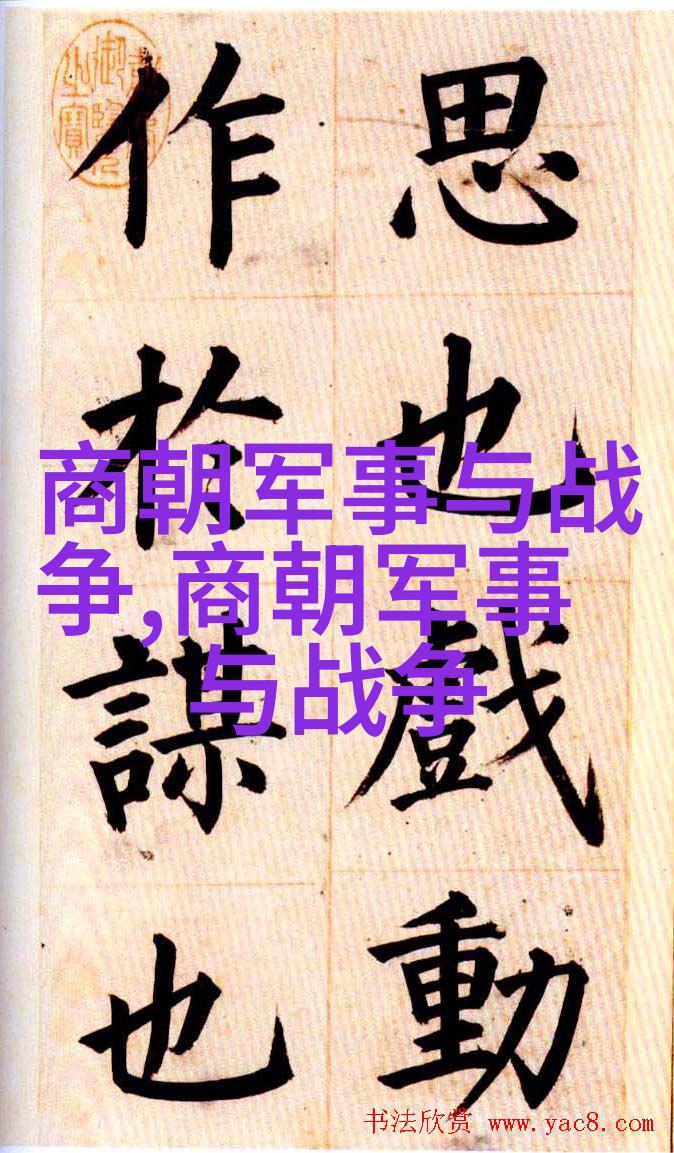 思也戲動
作於謀也
御覽
之寶
商朝军事与战
争,商朝军事
与战争
书法欣赏 www.yac8.com